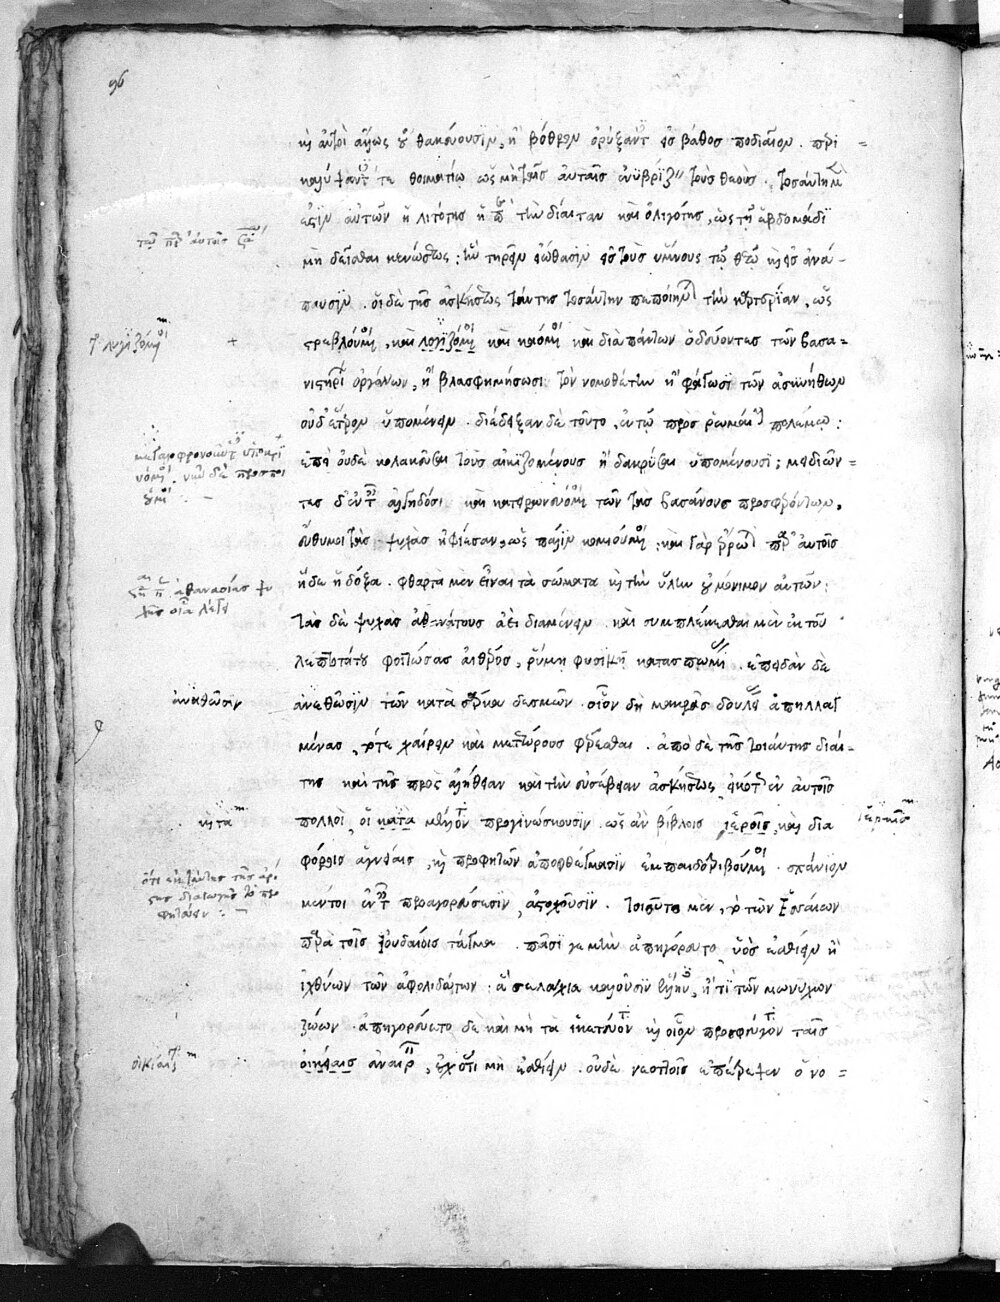 96
κ(αὶ) αὐτοὶ ἄλλως οὐ θακεύουσιν, ἢ βόθρον ὀρύξαντ(ες) εἰς βάθος ποδιαῖον. περι=
καλύψαντ(ές) τε θοἰματίῳ ὡς μὴ ταῖς αὐταῖς ἐνυβρίζ(ειν) τοὺς θεούς. τοσαύτη μὲ(ν)
ἐστὶν αὐτῶν ἡ λιτότης ἡ π(ερὶ) τὴν δίαιταν καὶ ὀλιγότης, ὡς τῇ ἑβδομάδι
μὴ δεῖσθαι κενώσεως· ἣν τηρεῖν εἰώθασιν εἰς τοὺς ὕμνους τῷ θεῷ κ(αὶ) εἰς ἀνά-
παυσιν. οἱ δὲ τῆς ἀσκήσεως ταύτης τοσαύτην πεποίηντ(αι) τὴν καρτερίαν, ὡς
στρεβλούμ(εν)οι, καὶ λογιζόμ(εν)οι καὶ καόμ(εν)οι καὶ διὰ πάντων ὁδεύοντες τῶν βασα=
νιστηρί(ων) ὀργάνων, ἢ βλασφημήσωσι τὸν νομοθέτην ἢ φάγωσι τῶν ἀσυνήθων
οὐδέτερον ὑπομένειν. διέδειξαν δὲ τοῦτο, ἐν τῷ πρὸς ῥωμαί(ους) πολέμῳ:
ἐπεὶ οὐδὲ κολακεῦσαι τοὺς αἰκιζομένους ἢ δακρῦσαι ὑπομένουσι; μειδιῶν=
τες δ' ἐν τ(αῖς) ἀλγηδόσι καὶ κατειρωνευόμ(εν)οι τῶν τὰς βασάνους προσφερόντων,
εὔθυμοι τὰς ψυχὰς ἠφίεσαν, ὡς πάλιν κομιούμ(εν)οι· καὶ γὰρ ἔρρωτ(αι) παρ' αὐτοῖς
ἥδε ἡ δόξα. φθαρτὰ μὲν εἶναι τὰ σώματα κ(αὶ) τὴν ὕλην οὐ μόνιμον αὐτῶν:
τὰς δὲ ψυχὰς ἀθανάτους ἀεὶ διαμένειν. καὶ συμπλέκεσθαι μὲν ἐκ τοῦ
λεπτοτάτου φοιτώσας αἰθέρος, ῥύμῃ φυσικῇ κατασπωμέ(νας). ἐπειδὰν δὲ
ἀνεθῶσιν τῶν κατὰ σάρκα δεσμῶν. οἷον δὴ μακρᾶς δουλεί(ας) ἀπηλλαγ
μένας, τότε χαίρειν καὶ μετεώρους φέρεσθαι. ἀπὸ δὲ τῆς τοιαύτης διαί-
της καὶ τῆς πρὸς ἀλήθειαν καὶ τὴν εὐσέβειαν ἀσκήσεως, εἰκότ(ως) ἐν αὐτοῖς
πολλοὶ, οἳ κατὰ μέλλοντ(α) προγινώσκουσιν ὡς ἂν βίβλοις ἱεροῖς, καὶ δια
φόροις ἁγνείαις, κ(αὶ) προφητῶν ἀποφθέγμασιν ἐμπαιδοτριβούμ(εν)οι. σπάνιον
μέντοι ἐν τ(αῖς) προαγορεύσεσιν, ἀστοχοῦσιν. τοιοῦτο μὲν, τὸ τῶν Ἐσσαίων
παρὰ τοῖς ἰουδαίοις τάγμα. πᾶσί γε μὴν ἀπηγόρευτο, ὑὸς ἐσθίειν ἢ
ἰχθύων τῶν ἀφολιδώτων· ἃ σελάχια καλοῦσιν ἕλλην(ες), ἤ τι τῶν μωνύχων
ζώων. ἀπηγόρευτο δὲ καὶ μὴ τὰ ἱκετεύοντ(α) κ(αὶ) οἷον προσφεύγοντ(α) ταῖς
οἰκείαις ἀναιρ(εῖν), ἔχ ὅτι μὴ ἐσθίειν. οὐδὲ νεοττοῖς ἐπέτρεψεν ὁ νο=
κ(αὶ) τὰ
ἀνεθῶσιν
ἀθανασίας ψυ
χῆς οἷα λέγει
ὅτι ἐκ ταύτης τῆς ἀρί
στης διαγωγῆς τὸ προ
φητεύειν :-
ἱεραῖς
οἰκίαις